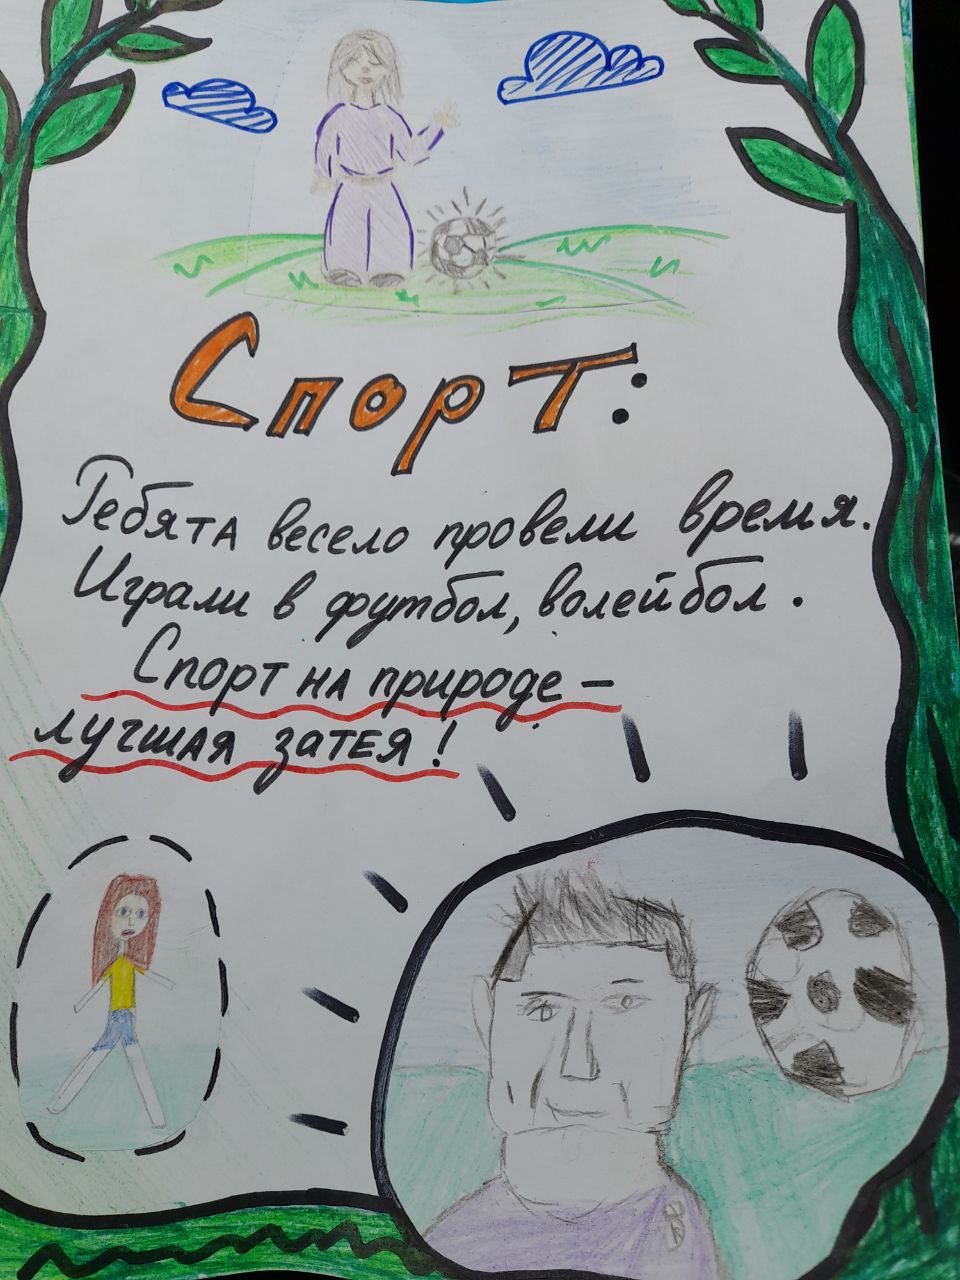 Спорт:
Ребята весело провели время.
Играли в футбол, волейбол.
Спорт на природе –
лучшая затея!